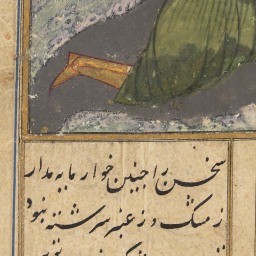 سخن را چنین خوار مایه مدار
ز مشک و ز عنبر سرشته نبود